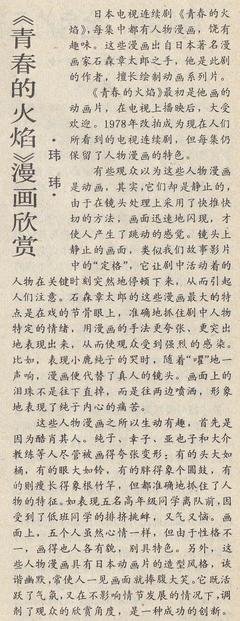 《青春的火焰》漫画欣赏
·玮 玮·
日本电视连续剧《青春的火
焰》，每集中都有人物漫画，饶有
趣味。这些漫画出自日本著名漫
画家石森章太郎之手，他是此剧
的作者，擅长绘制动画系列片。
《青春的火焰》最初是他画的
动画片，在电视上播映后，大受
欢迎。1978年改拍成为现在人们
所看到的电视连续剧，但每集仍
保留了人物漫画的特色。
有些观众以为这些人物漫画
是动画，其实，它们却是静止的，
由于在镜头处理上采用了快推快
切的方法，画面迅速地闪现，才
使人产生了跳动的感觉。镜头上
静止的画面，类似我们故事影片
中的“定格”，它让剧中活动着的
人物在关键时刻突然地停顿下来，从而引起
人们注意。石森章太郎的这些漫画最大的特
点是在戏的节骨眼上，准确地抓住剧中人物
特定的情绪，用漫画的手法更夸张、更突出
地表现出来，从而使观众受到强烈的感染。
比如，表现小鹿纯子的哭时，随着“嚁”地一
声响，漫画便代替了真人的镜头。画面上的
泪珠不是往下直掉，而是往两边喷洒，形象
地表现了纯子内心的痛苦。
这些人物漫画之所以生动有趣，首先是
因为酷肖其人。纯子、幸子、亚也子和大介
教练等人尽管被画得夸张变形；有的头大如
桶，有的眼大如铃，有的胖得象个圆鼓，有
的则瘦长得象根竹竿，但都准确地抓住了人
物的特征。如表现五名高年级同学离队前，因
受到了低班同学的排挤挑衅，又气又恼。画
面上，五个人虽然心情一样，但由于性格不
一，画得也人各有貌，别具特色。另外，这
些人物漫画具有日本动画片的造型风格，诙
谐幽默，常使人一见画面就捧腹大笑。它既活
跃了气氛，又在不影响情节发展的情况下，调
剂了观众的欣赏角度，是一种成功的创新。